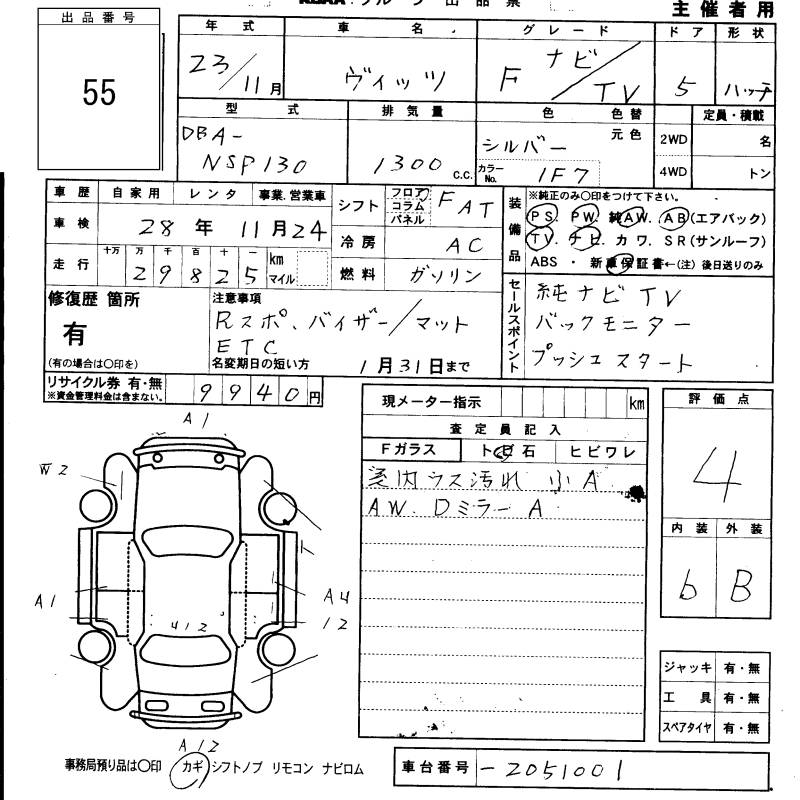 主催者用
出品番号
55
年式 車名 グレード ドア 形状
23/11月 ヴィッツ F ナビ/TV 5 ハッチ
型式 排気量 色 色替 定員・積載
DBA- 元色 2WD 名
NSP130 1300 c.c. シルバー カラーNo. 1F7 4WD トン
車歴 自家用 レンタ 事業.営業車
シフト フロア コラム パネル FAT
車検 28年11月24
冷房 AC
走行 十万 万 千 百 十 一 29825 km マイル
燃料 ガソリン
装備品 ※純正のみ〇印をつけて下さい。
PS. PW. 純AW. AB(エアバック)
TV. ナビ. カワ. SR(サンルーフ)
ABS ・ 新車保証書←(注) 後日送りのみ
修復歴 箇所
有
(有の場合は〇印を)
注意事項
Rスポ、バイザー/マット
ETC
名変期日の短い方 1月31日まで
セールスポイント
純ナビTV
バックモニター
プッシュスタート
リサイクル券 有・無 9940円
※資金管理料金は含まない。
現メーター指示 km
査定員記入
Fガラス トビ石 ヒビワレ
内ウス汚れ 小A
AW. Dミラー A
評価点
4
内装 外装
b B
A1
W2
A1
A4
12
412
A12
ジャッキ 有・無
工具 有・無
スペアタイヤ 有・無
事務局預り品は〇印 カギ シフトノブ リモコン ナビロム
車台番号 -2051001